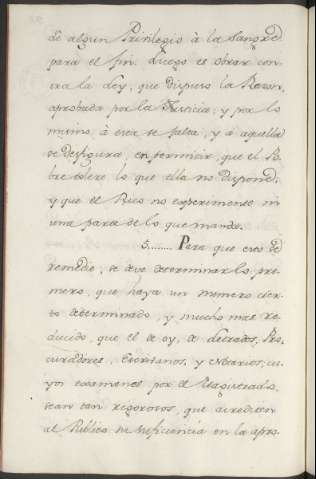 de algun Privilegio à la Sangre
para el fin. Luego es obrar con-
tra la Ley, que dispuso la Razon,
aprobada por la Justicia; y por lo
mismo, à esta se falta, y à aquella
se desfigura, en permitir, que el Po-
bre tolere lo que ella no dispone,
y que el Rico no experimente ni
una parte de lo que manda.
5........ Para que esto se
remedie, se deve determinar lo pri-
mero, que haya un numero cier-
to determinado, y mucho mas re-
ducido, que el de oy, de Letrados, Pro-
curadores, Escrivanos, y Notarios; cu-
yos examenes por el
sean tan rigorosos, que acrediten
al Publico su suficiencia en la apro-